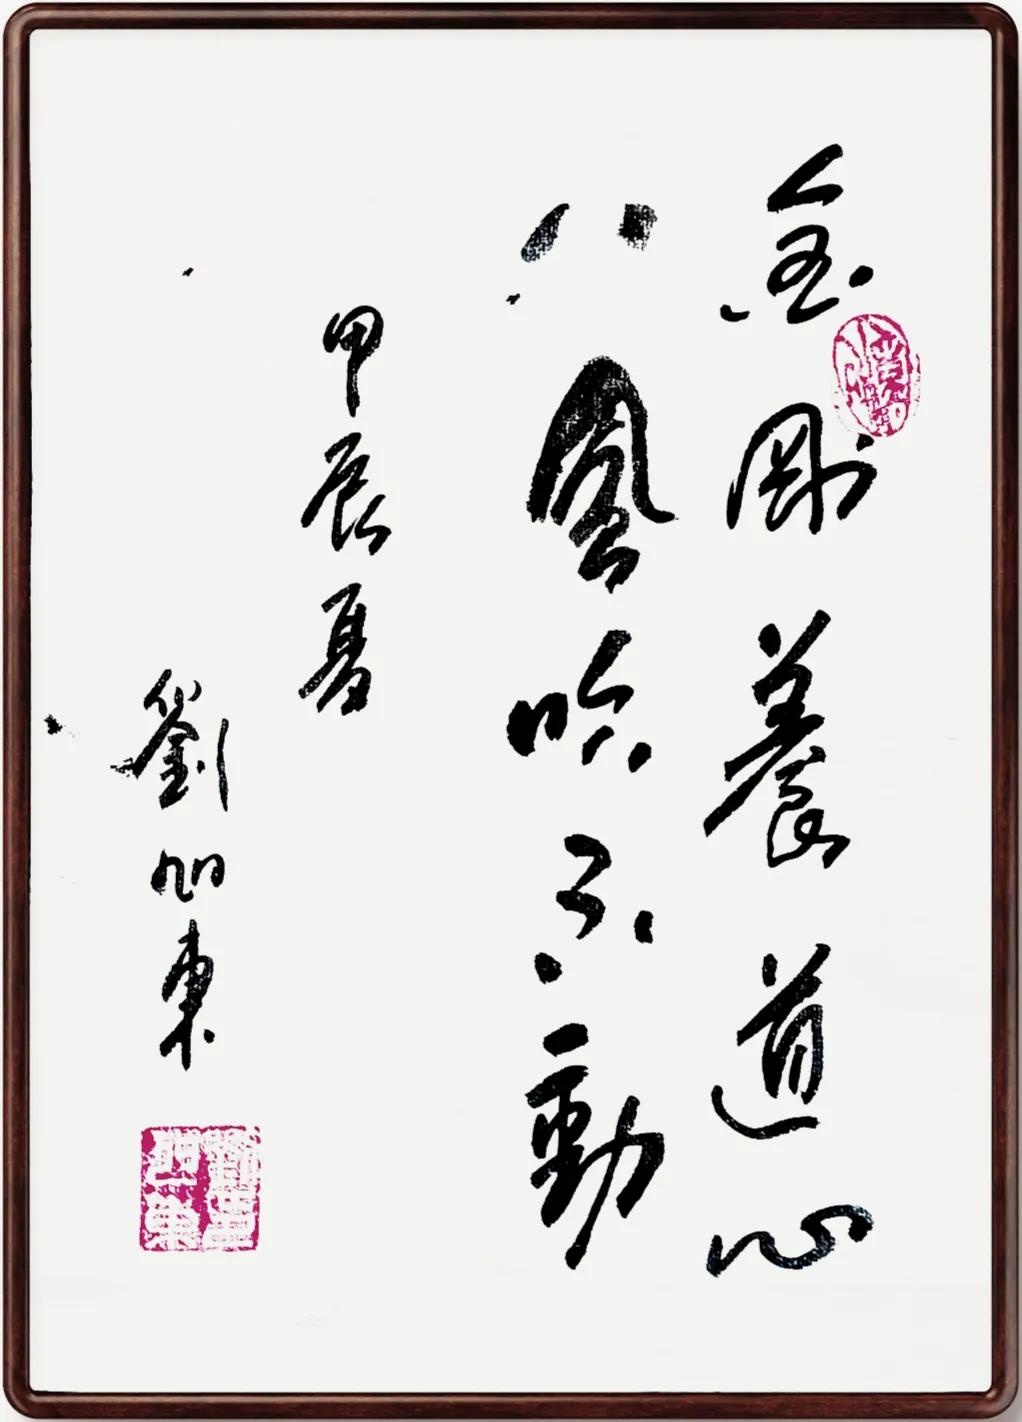 金剛養道心
八風吹不動
甲辰夏
劉旭東